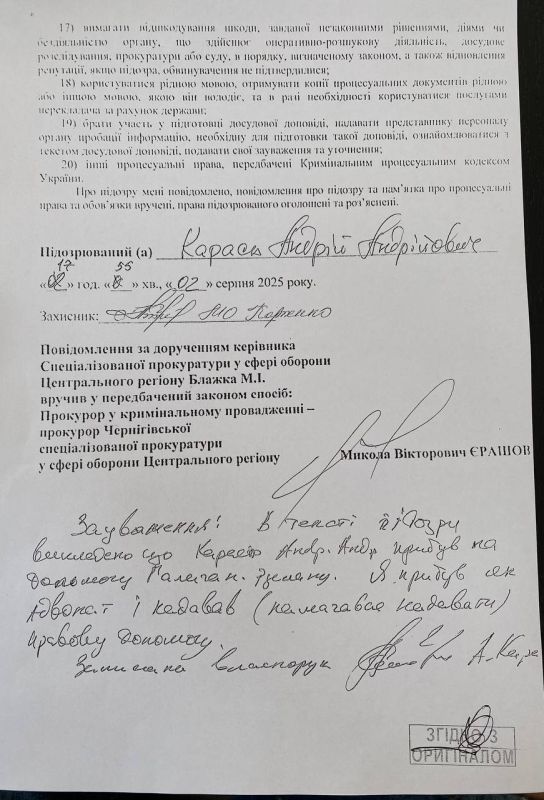 17) вимагати відшкодування шкоди, завданої незаконними рішеннями, діями чи
бездіяльністю органу, що здійснює оперативно-розшукову діяльність, досудове
розслідування, прокуратури або суду, в порядку, визначеному законом, а також відновлення
репутації, якщо підозра, обвинувачення не підтвердилися;
18) користуватися рідною мовою, отримувати копії процесуальних документів рідною
або іншою мовою, якою він володіє, та в разі необхідності користуватися послугами
перекладача за рахунок держави;
19) брати участь у підготовці досудової доповіді, надавати представнику персоналу
органу пробації інформацію, необхідну для підготовки такої доповіді, ознайомлюватися з
текстом досудової доповіді, подавати свої зауваження та уточнення;
20) інші процесуальні права, передбачені Кримінальним процесуальним кодексом
України.
Про підозру мені повідомлено, повідомлення про підозру та пам'ятка про процесуальні
права та обов'язки вручені, права підозрюваного оголошені та роз'яснені.
Підозрюваний (а) Карась Андрій Андрійович
17 55
« » год. « » хв., «02» серпня 2025 року.
Захисник:
Повідомлення за дорученням керівника
Спеціалізованої прокуратури у сфері оборони
Центрального регіону Блажка М.І.
вручив у передбачений законом спосіб:
Прокурор у кримінальному провадженні –
прокурор Чернігівської
спеціалізованої прокуратури
у сфері оборони Центрального регіону Микола Вікторович ЄРАШОВ
Зауваження! В тексті підозри
викладено що Карась Андр. Андр прибув на
допомогу . Я прибув як
адвокат і надавав (намагався надавати)
правову допомогу.
Записана власноруч
ЗГІДНО З
ОРИГІНАЛОМ